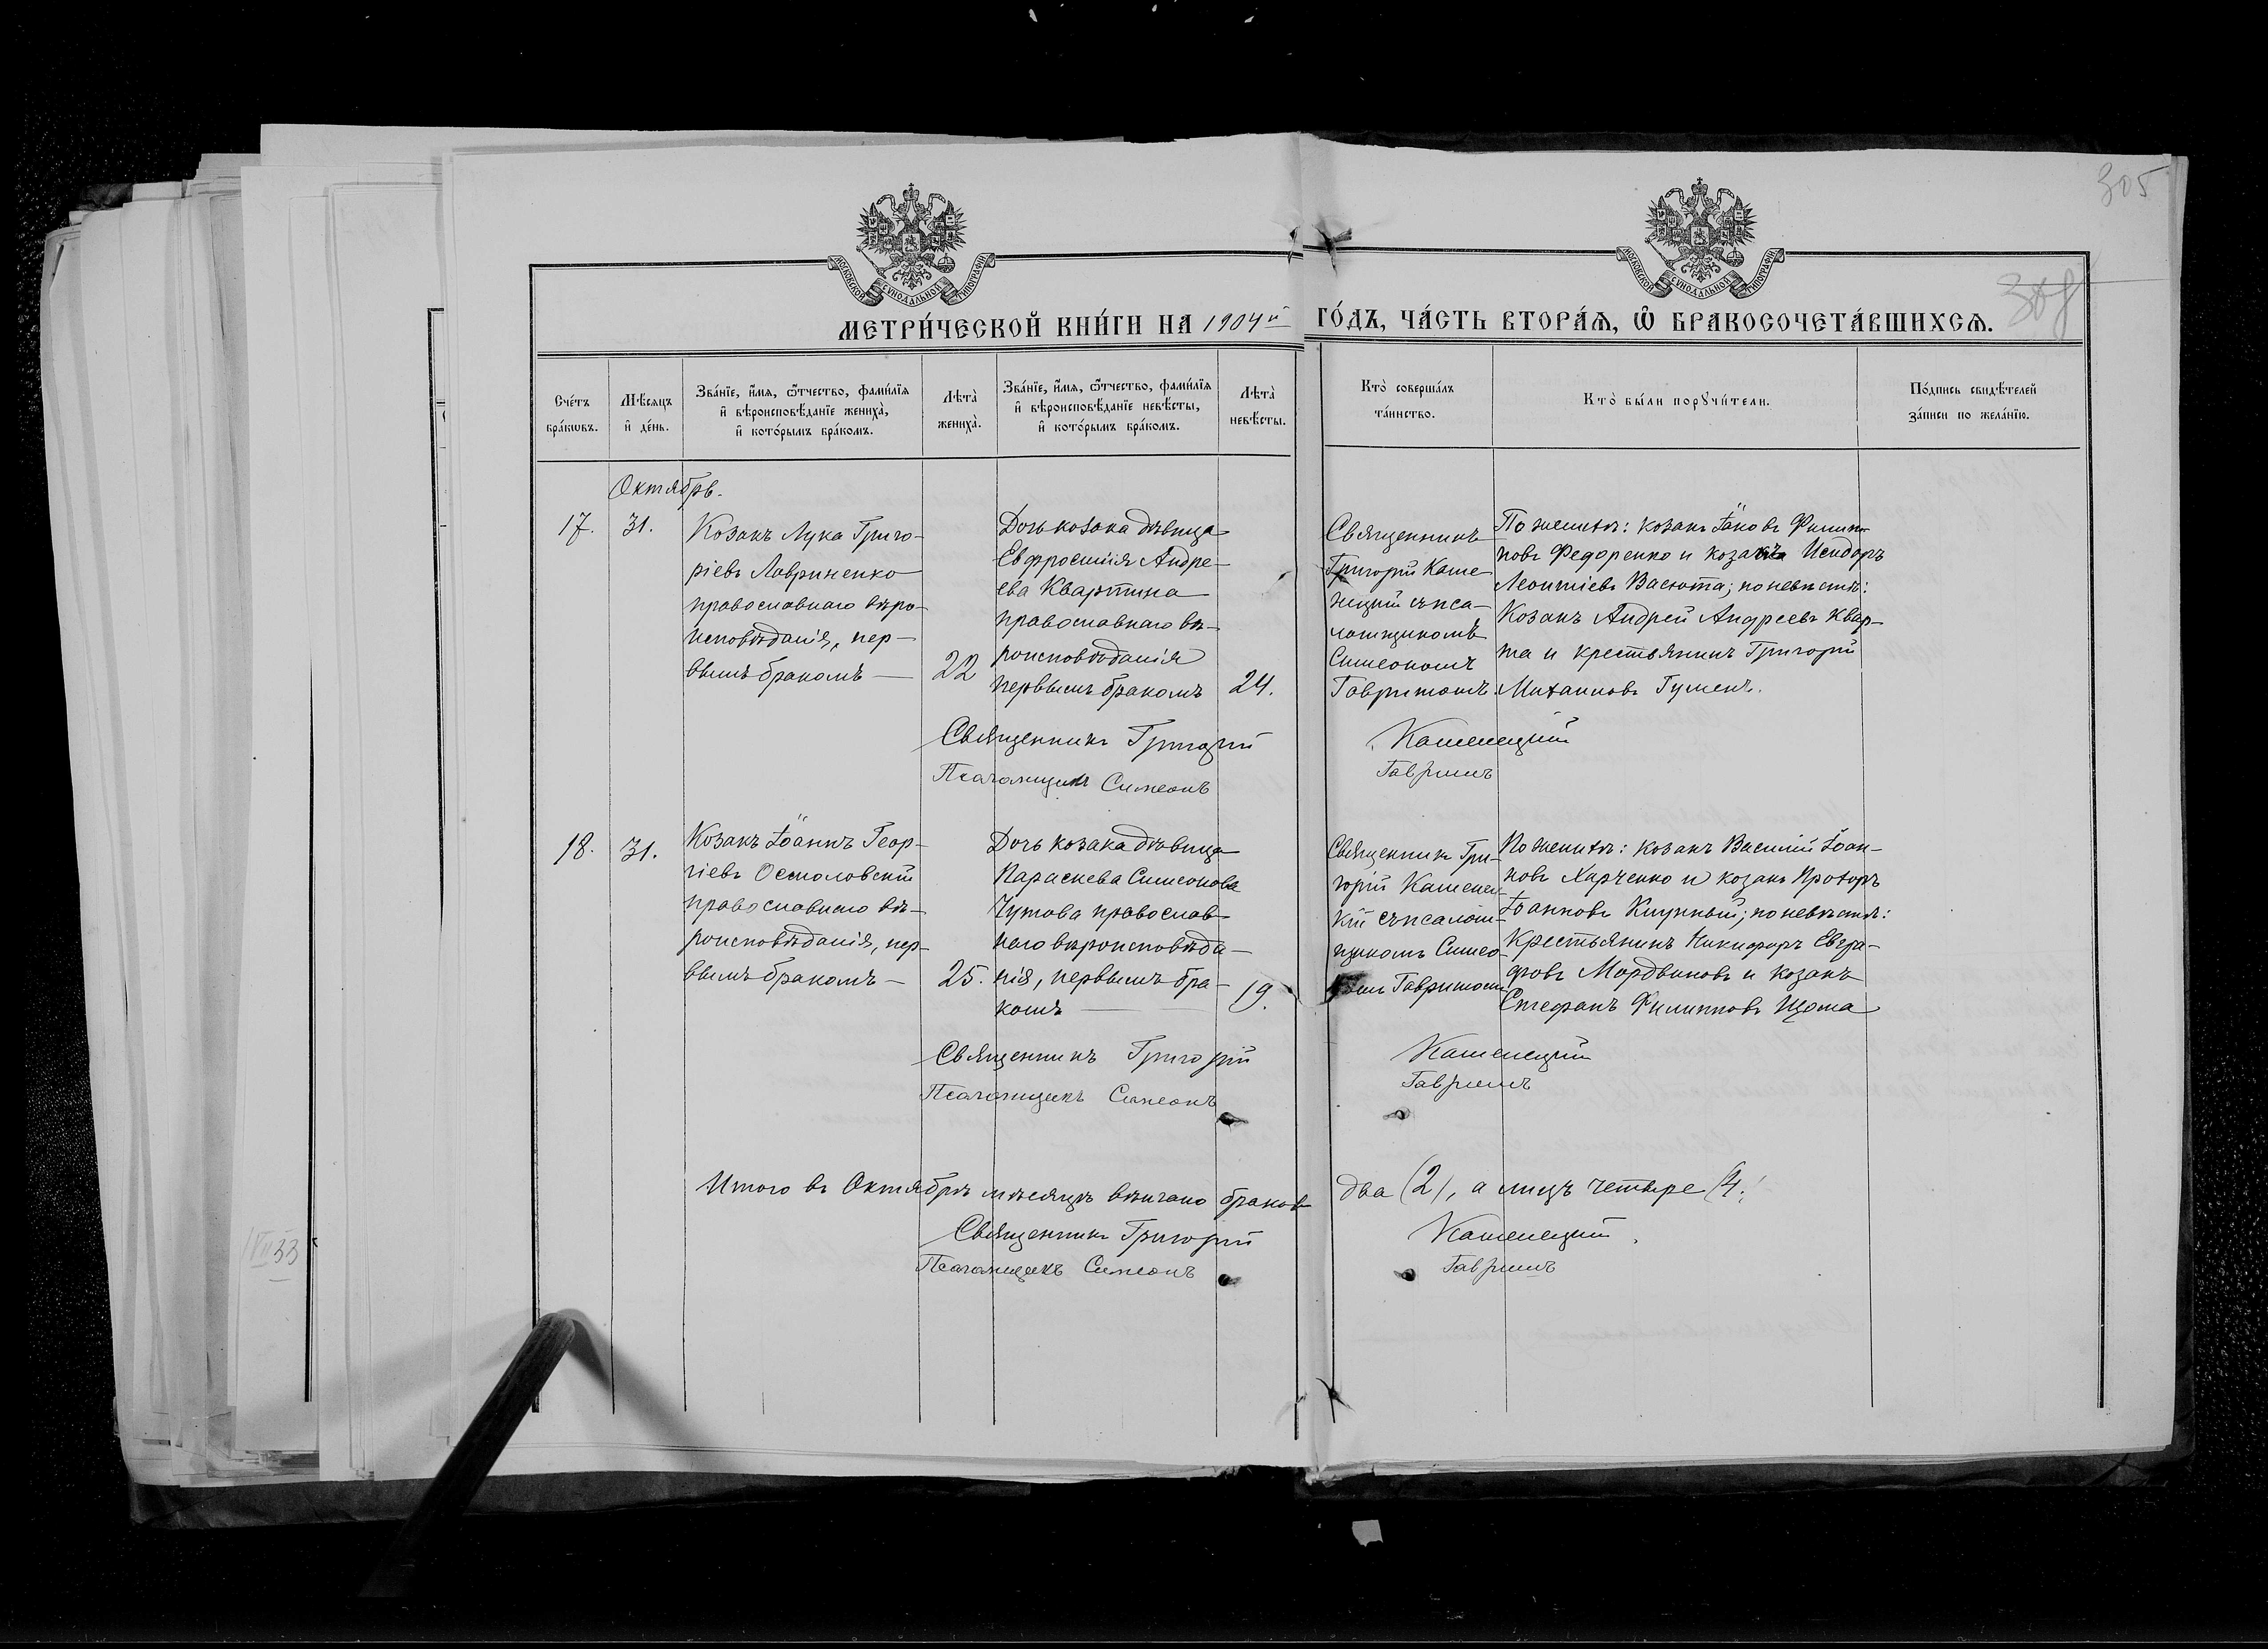 305
308
МОСКОВСКОЙ СУНОДАЛЬНОЙ ТИПОГРАФІИ
МОСКОВСКОЙ СУНОДАЛЬНОЙ ТИПОГРАФІИ
МЕТРИ́ЧЕСКОЙ КНИ́ГИ НА 1904й ГО́ДЪ, ЧА́СТЬ ВТОРА́Ѧ, Ѽ БРАКОСОЧЕТА́ВШИХСѦ.
Сче́тъ
бра́кѡвъ.
Мѣ́сяцъ
и҆ де́нь.
Зва́нїе, и҆́мѧ, ѻ҆́тчество, фами́лїѧ
и҆ вѣроисповѣ́данїе жениха̀,
и҆ кото́рымъ бра́комъ.
Лѣта̀
жениха̀.
Зва́нїе, и҆́мѧ, ѻ҆́тчество, фами́лїѧ
и҆ вѣроисповѣ́данїе невѣ́сты,
и҆ кото́рымъ бра́комъ.
Лѣта̀
невѣ́сты.
Кто̀ соверша́лъ
та́инство.
Кто̀ бы́ли порꙋчи́тели.
По́дпись свидѣ́телей
за́писи по жела́нїю.
Октябрь.
17.
31.
Козакъ Лука Григо-
ріевъ Лавриненко
православнаго вѣро-
исповѣданія, пер-
вымъ бракомъ —
22
Дочь козака дѣвица
Евфросинія Андре-
ева Квартина
православнаго вѣ-
роисповѣданія
первымъ бракомъ
24.
Священникъ
Григорій Каме-
нецкій съ пса-
ломщикомъ
Симеономъ
Гавришомъ.
По женихѣ: козакъ Іаковъ Филип-
повъ Федоренко и козакъ Исидоръ
Леонтіевъ Васюта; по невѣстѣ:
Козакъ Андрей Андреевъ Квар-
та и крестьянинъ Григорій
Михаиловъ Гумень.
Священникъ Григорій Каменецкій
Псаломщикъ Симеонъ Гавришъ
18.
31.
Козакъ Іоаннъ Геор-
гіевъ Осмоловскій
православнаго вѣ-
роисповѣданія, пер-
вымъ бракомъ —
25.
Дочь козака дѣвица
Параскева Симеонова
Чутова православ-
наго вѣроисповѣда-
нія, первымъ бра-
комъ —
19.
Священникъ Гри-
горій Каменец-
кій съ псалом-
щикомъ Симео-
номъ Гавришомъ
По женихѣ: козакъ Василій Іоан-
новъ Харченко и козакъ Прохоръ
Іоанновъ; по невѣстѣ:
Крестьянинъ Никифоръ Евгра-
фовъ Мордвиновъ и козакъ
Стефанъ Филипповъ
Священникъ Григорій Каменецкій
Псаломщикъ Симеонъ Гавришъ
Итого въ Октябрѣ мѣсяцѣ вѣнчано браковъ два (2), а лицъ четыре (4.)
Священникъ Григорій Каменецкій.
Псаломщикъ Симеонъ Гавришъ